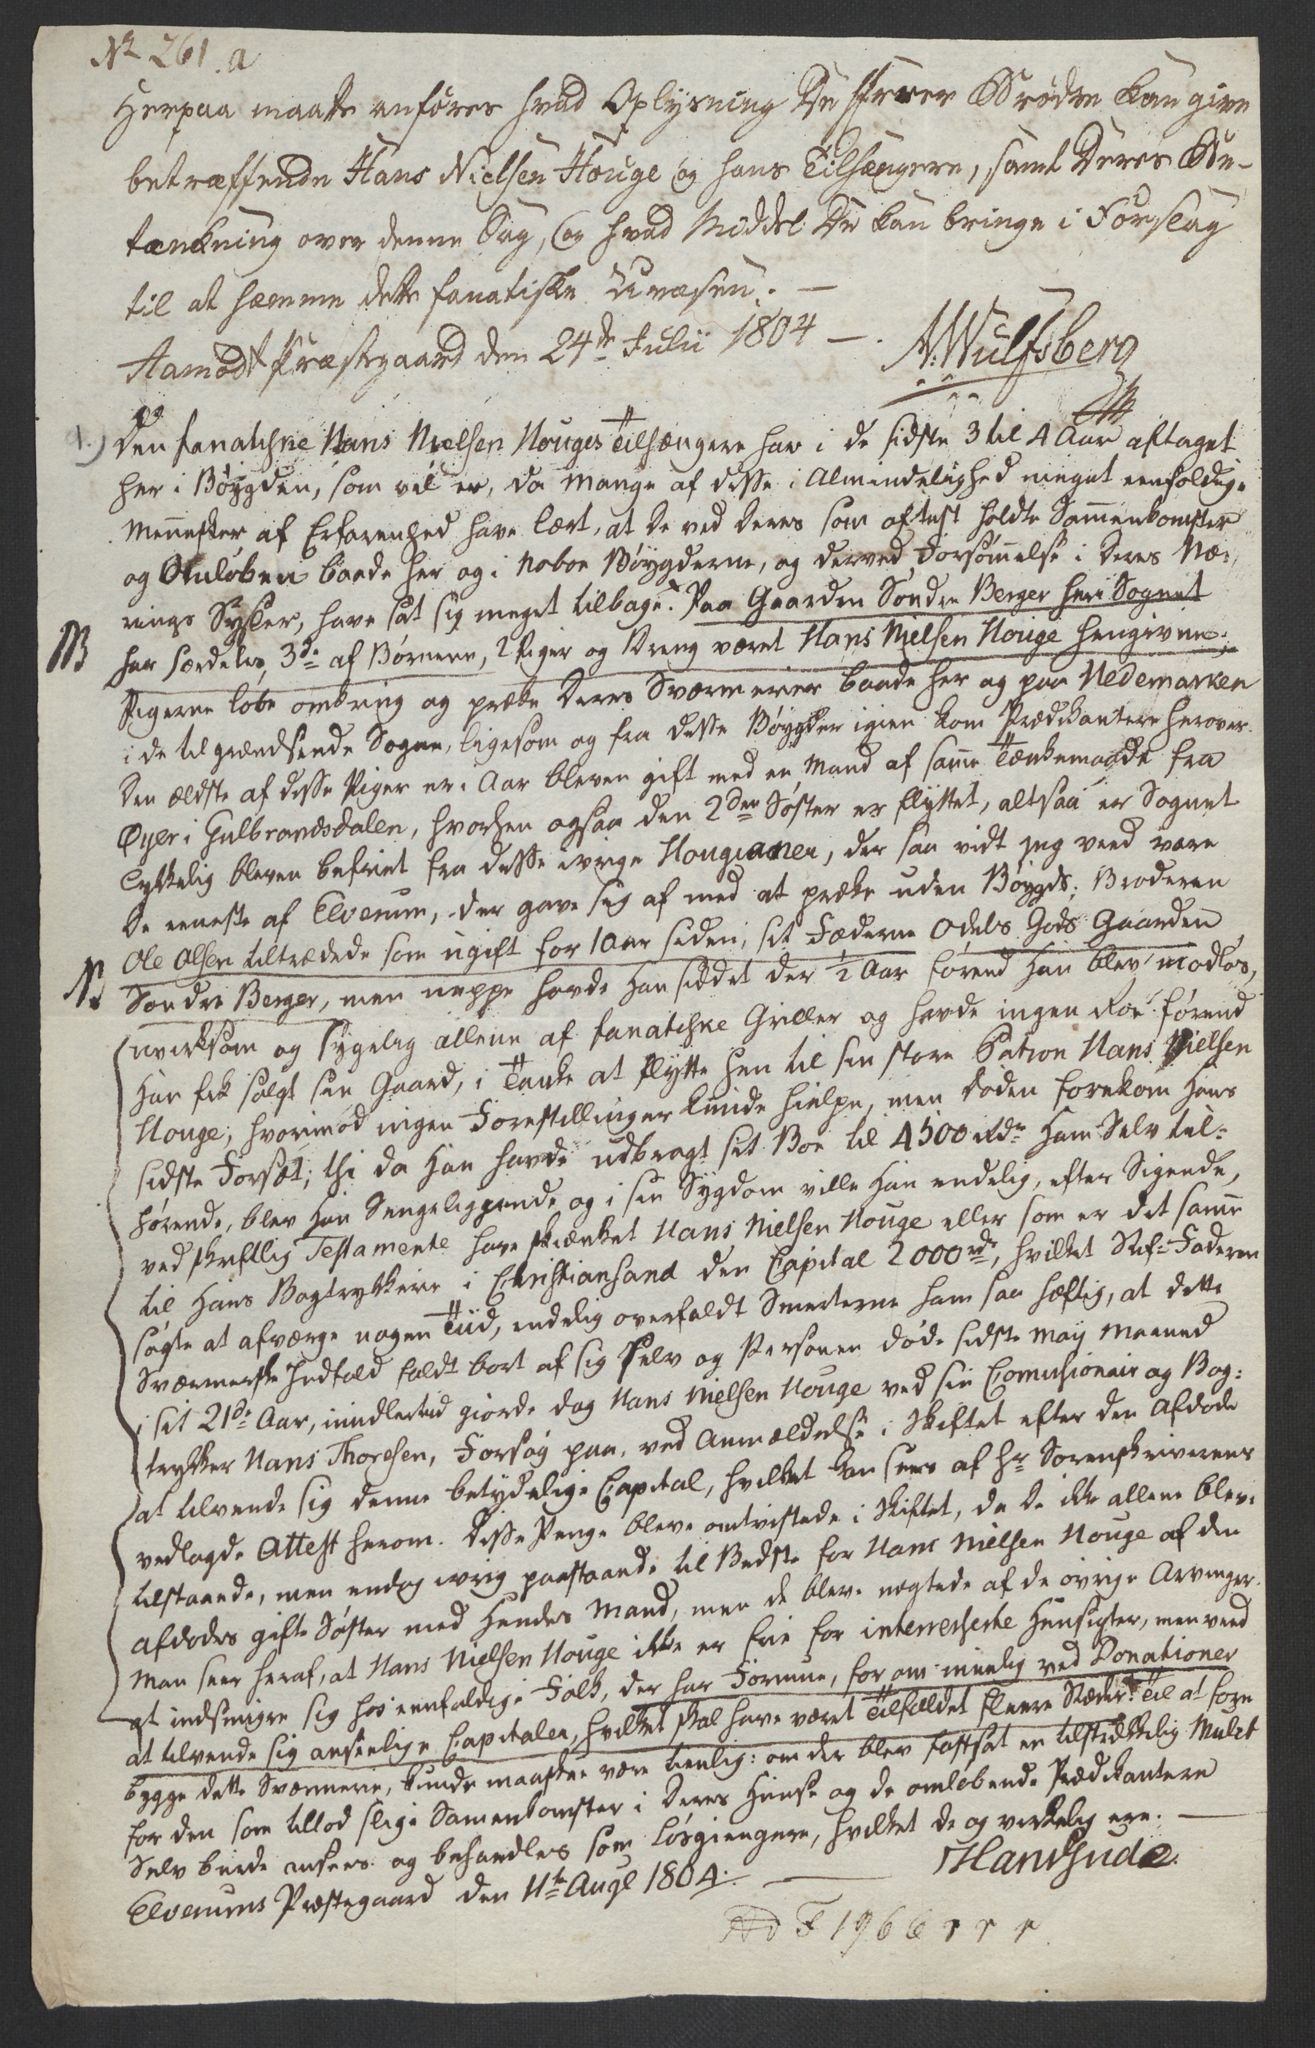 No 261.a
Herpaa maatte anføres hvad Oplysning De Herrer Brødre kan give
betræffende Hans Nielsen Houge og hans Tilhængere, samt Deres Be-
tænkning over denne Sag, og hvad Middel De kan bringe i Forslag
til at hæmme dette fanatiske Uvæsen. —
Aamodt Præstegaard den 24de Julii 1804 —. A. Wulfsberg
1.) Den fanatiske Hans Nielsen Houges Tilhængere har i de sidste 3 til 4 Aar aftaget
her i Bøygden, som vel er, da mange af disse i Almindelighed meget eenfoldige
Mennesker af Erfarenhed have lært, at de ved deres som oftest holdte Sammenkomster
og Omløben baade her og i Naboe Bøygderne, og derved Forsømmelse i deres Næ-
rings Sysler, have sat sig meget tilbage. Paa Gaarden Søndre Berger her i Sognet
har særdeles 3de af Børnene, 2 Piger og Dreng været Hans Nielsen Houge hengivne;
Pigerne løbe omkring og præke deres Sværmerier baade her og paa Hedemarken
i de tilgrændsende Sogne, ligesom og fra disse Bøygder igien kom Prædikantere herover.
Den ældste af disse Piger er i Aar bleven gift med en Mand af samme Tænkemaade fra
Øyer i Gulbrandsdalen, hvorhen ogsaa den 2den Søster er flyttet, altsaa er Sognet
lykkelig bleven befriet fra disse ivrige Hougianer, der saa vidt jeg veed vare
de eeneste af Elverum, der gave sig af med at præke uden Bøygds; Broderen
Ole Olsen tiltrædede som ugift for 1 Aar siden, sit Fæderne Odels Gods Gaarden
Søndre Berger, men neppe havde han siddet der ½ Aar førend han blev modløs,
uvirksom og sygelig allene af fanatiske Griller og havde ingen Roe førend
han fik solgt sin Gaard, i Tanke at flytte hen til sin store Patron Hans Nielsen
Houge, hvorimod ingen Forestillinger kunde hielpe, men Døden forekom hans
sidste Forsæt; thi da han havde udbragt sit Boe til 4300 rdr ham selv til-
hørende, blev han Sengeliggende og i sin Sygdom ville han endelig, efter Sigende,
ved skriftlig Testamente have skienket Hans Nielsen Houge eller som er det samme
til hans Bogtrykkerie i Christiansand den Capital 2000 rdr, hvilket Stif-Faderen
søgte at afværge nogen Tiid, endelig overfaldt Smerterne ham saa hæftig, at dette
Sværmerske Indfald faldt bort af sig selv og Personen døde sidste May Maaned
i sit 21de Aar, imidlertid giorde dog Hans Nielsen Houge ved sin Comissionair og Bog-
trykker Hans Thoresen, Forsøg paa, ved Anmældelse i Skiftet efter den Afdøde
at tilvende sig denne betydelige Capital, hvilket kan sees af Hr Sorenskriverens
vedlagde Attest herom. Disse Penge bleve omtvistede i Skiftet, da de ikke allene bleve
tilstaaede, men endog ivrig paastaaede til Bedste for Hans Nielsen Houge af den
afdødes gifte Søster med hendes Mand, men de bleve nægtede af de øvrige Arvinger.
Man seer heraf, at Hans Nielsen Houge ikke er frie for interresserte Hensigter, men veed
at indsmigre sig hos eenfoldige Folk, der har Formue, for om muelig ved Donationer
at tilvende sig anseelige Capitaler, hvilket skal have været Tilfældet fleere Stæder. Til at fore
bygge dette Sværmerie, kunde maaskee være tienlig: om der blev fastsat en tilstrekkelig Mulct
for den som tillod slige Samenkomster i deres Huuse og de omløbende Prædikantere
selv burde ansees og behandles som Løsgiengere, hvilket de og virkelig ere. —
Elverums Præstegaard den 11te Augl 1804. — HandHude.
Ad F 1966